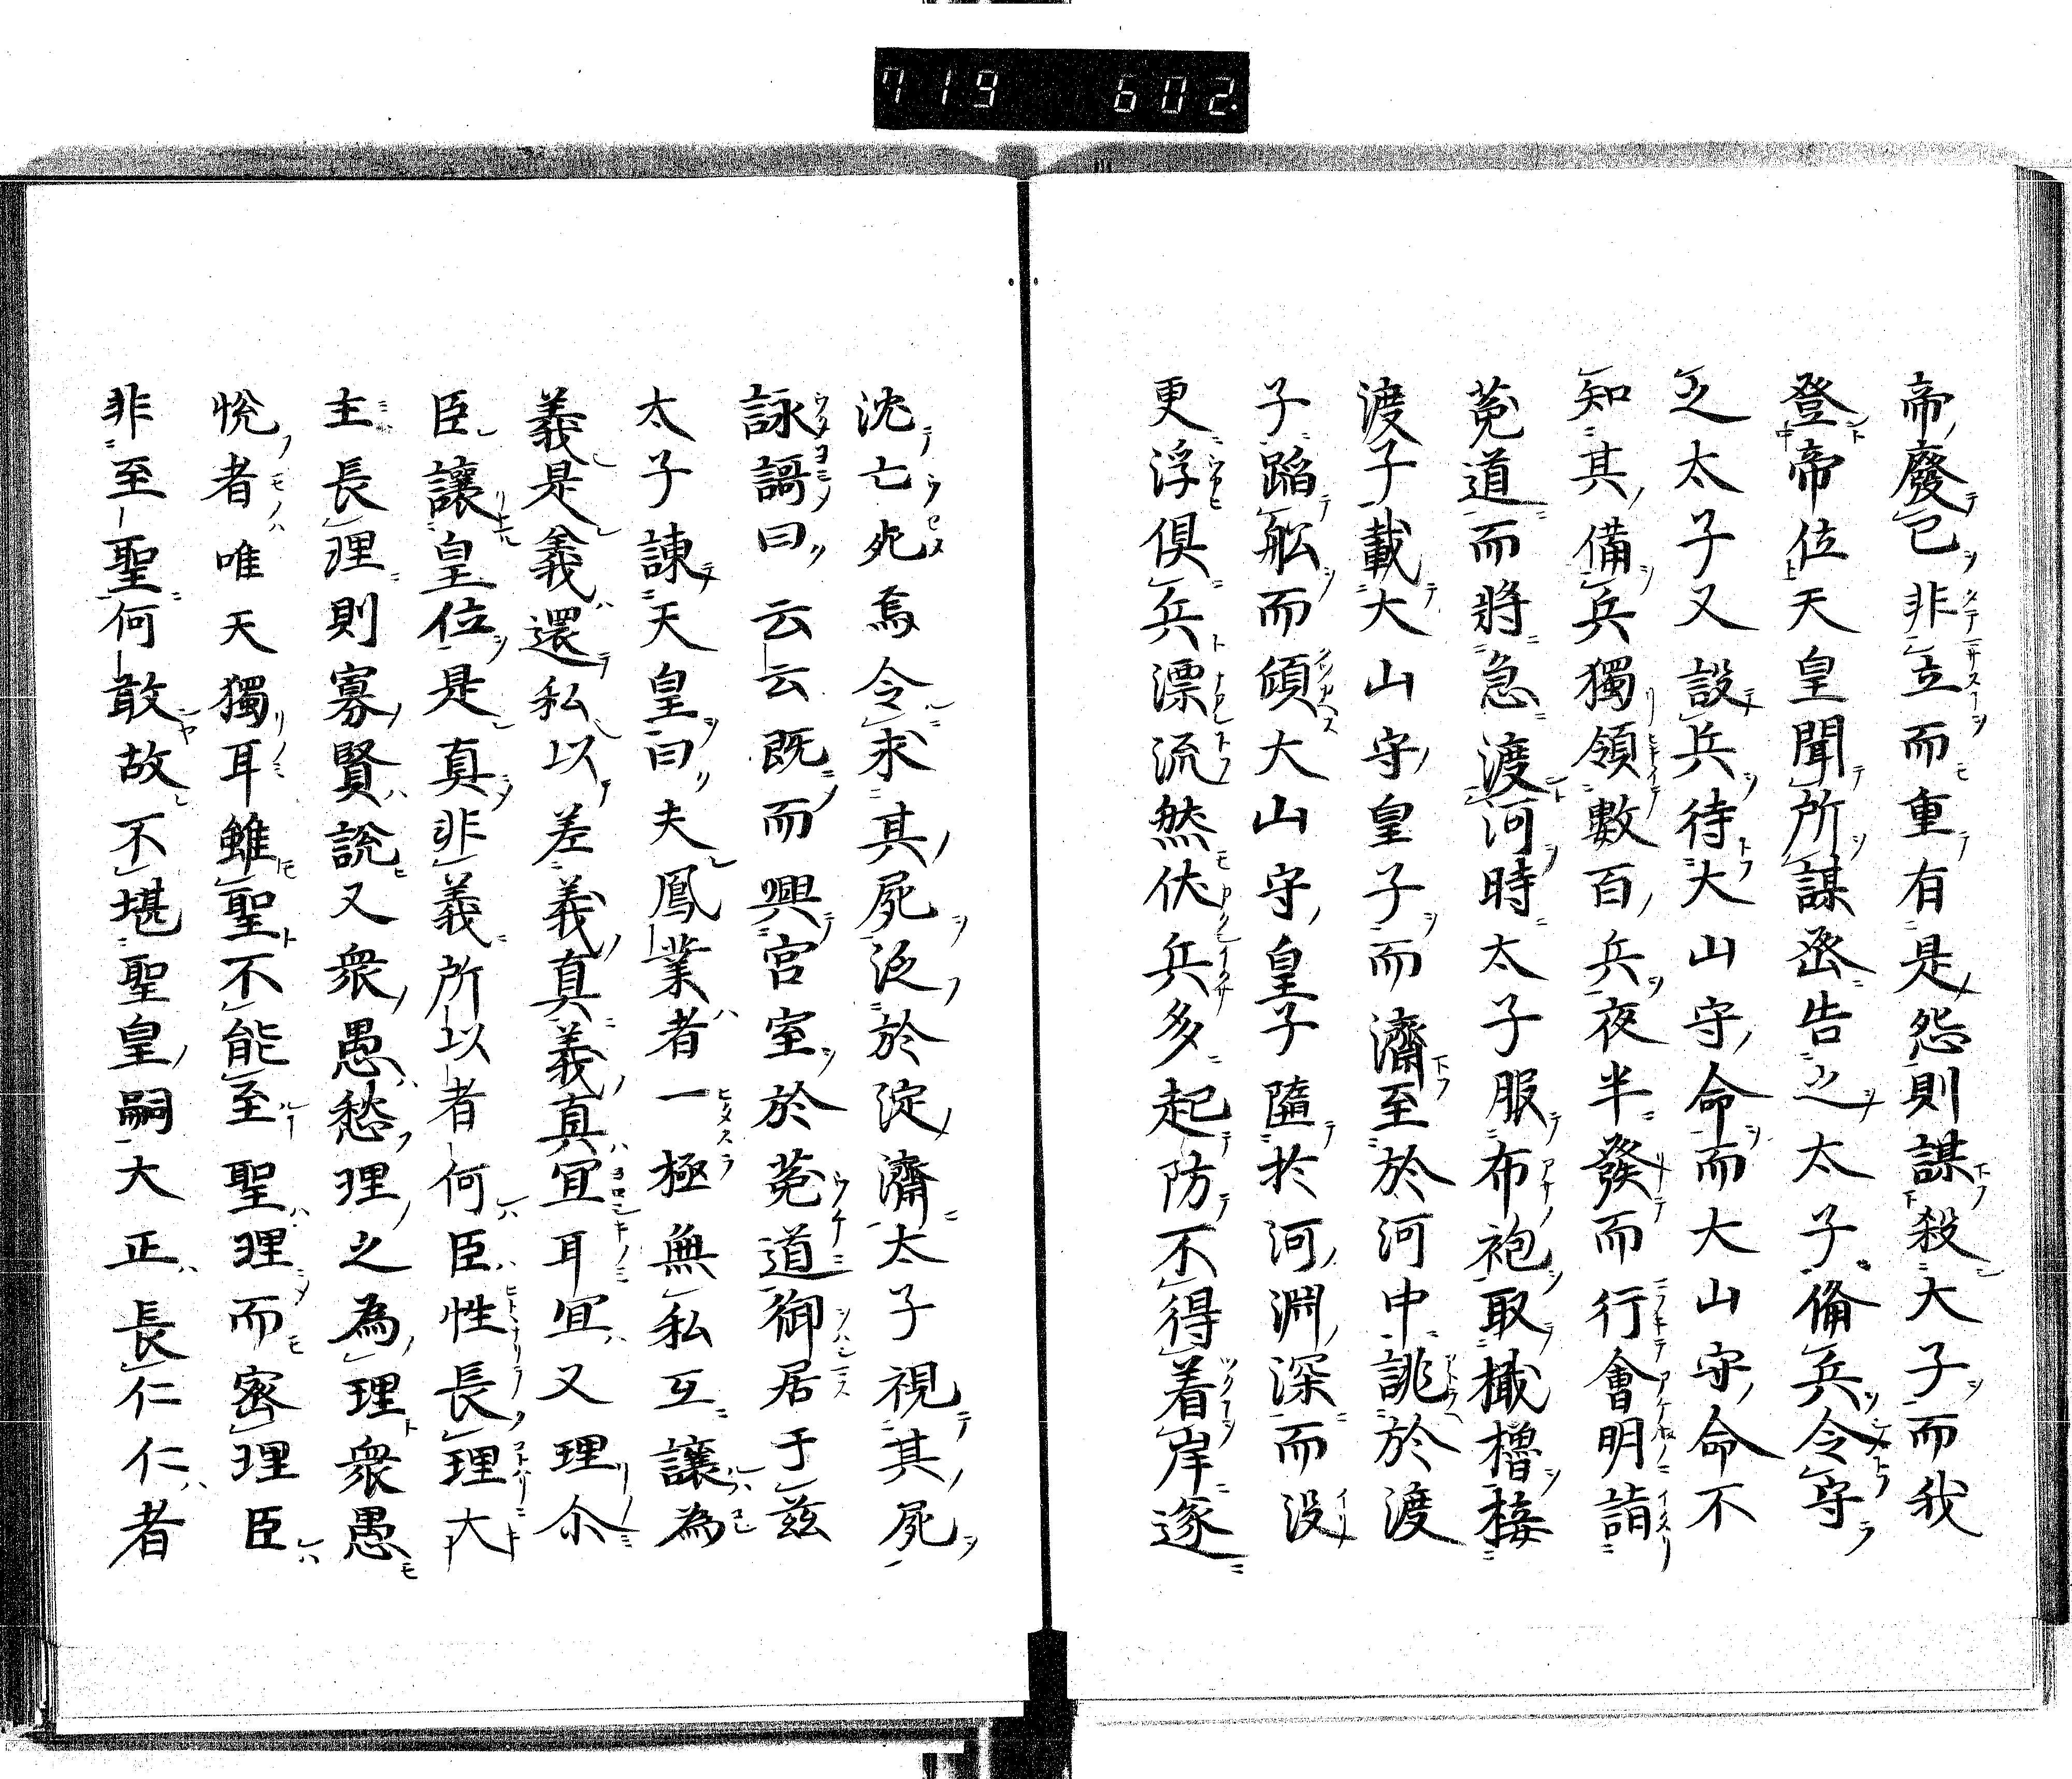 719 602
帝廢已非立而重有是怨則謀殺大子而我
登帝位天皇聞所謀丞告之太子備兵令守
之太子又設兵待大山守命而大山守命不
知其備兵獨領數百兵夜半發而行會明詣
菟道而將急渡河時太子服布袍取檝櫓接
渡子載大山守皇子而濟至於河中誂於渡
子蹈舩而傾大山守皇子隨於河渊深而没
更浮俱兵漂流然伏兵多起防不得着岸遂
沈亡死焉令求其屍泛於淀濟太子視其屍
詠謌曰云云既而興宮室於菟道御居于兹
太子諫天皇曰夫鳳業者一極無私互讓為
義是義還私以差義真義真宜耳宜又理尒
臣讓皇位是真非義所以者何臣性長理大
主長理則寡賢說又衆愚愁理之為理衆愚
悅者唯天獨耳雖聖不能至聖理而密理臣
非至聖何敢故不堪聖皇嗣大正長仁仁者